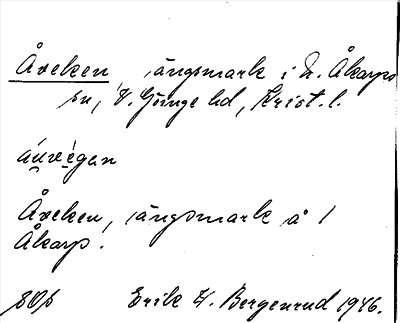 Åveken, ängsmark i N. Åkarps
sn, V. Göinge hd, Krist. l.
áuvègan
Åveken, ängsmark å 1
Åkarp.
Erik W. Bergenrud 1946.